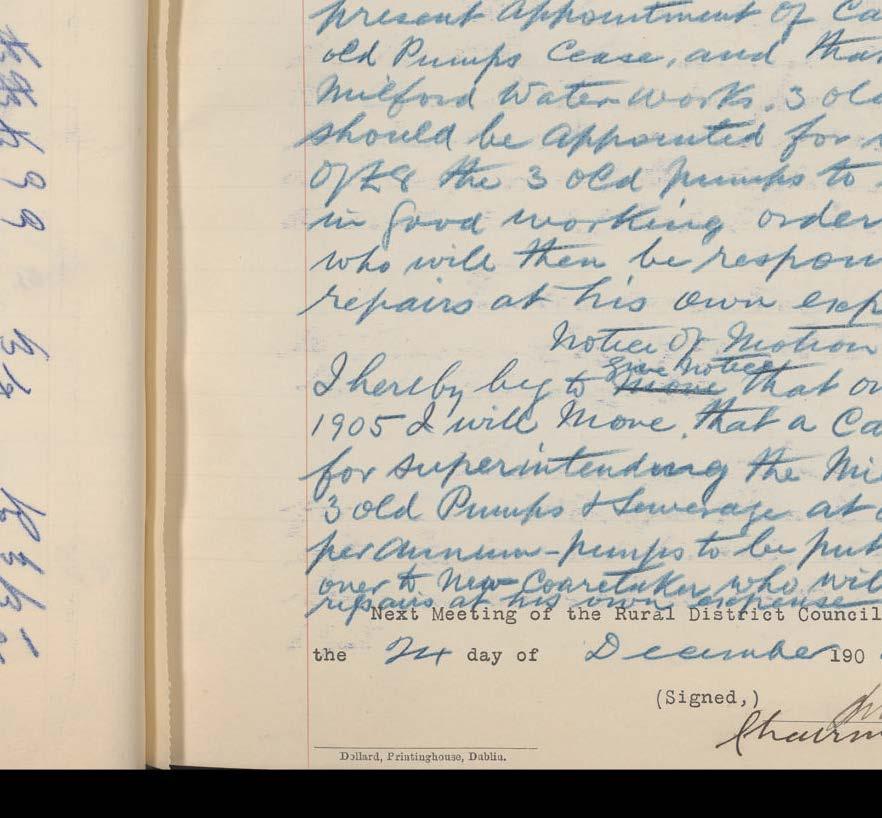 present appointment of Ca
old Pumps cease, and tha
Milford Water works. 3 old
should be appointed for
of £8 the 3 old pumps to
in good working order
who will then be respon
repairs at his own exp
Notice Of Motion
give notice
I hereby beg to move that on
1905 I will Move, that a Ca
for superintending the Mi
3 old Pumps & Sewerage at
per annum - pumps to be put
over to New Coaretaker who wil
repairs at his own expense
Next Meeting of the Rural District Council
the 24 day of December 190
(Signed,)
Chairm
Dollard, Printinghouse, Dublin.